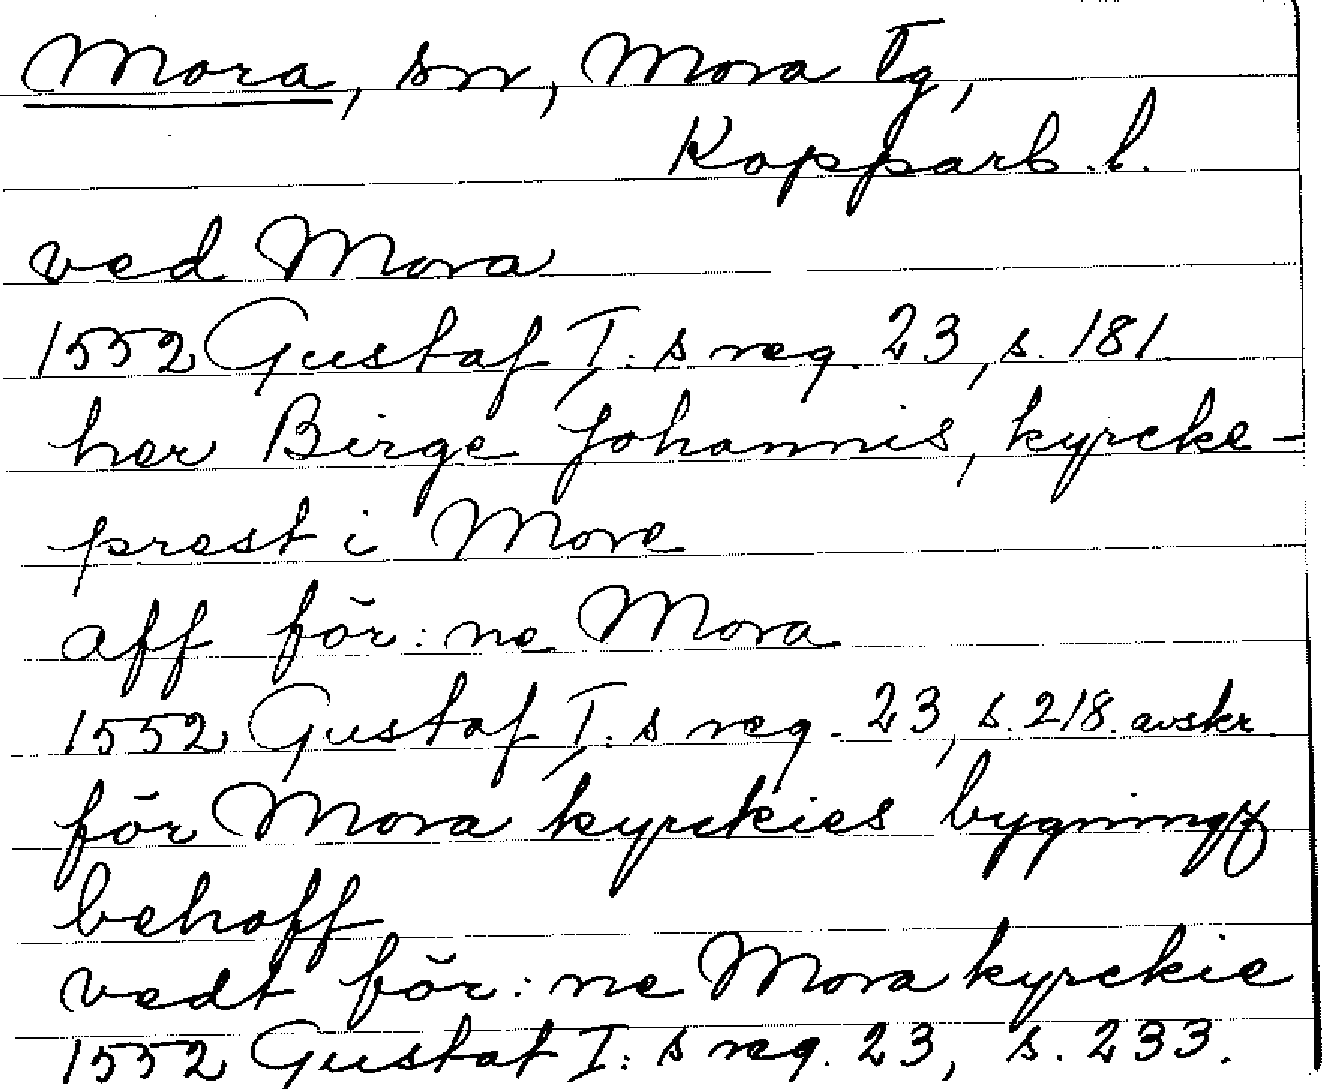 Mora, sn, Mora Tg,
Kopparb. l.
ved Mora
1552 Gustaf I:s reg. 23, s. 181
her Birge Johannis, kyrcke-
prest i More
aff för:ne Mora
1552 Gustaf I:s reg. 23, s. 218. avskr.
för Mora kyrckies bygningz
behoff
vedt för:ne Mora kyrckie
1552 Gustaf I:s reg. 23, s. 233.